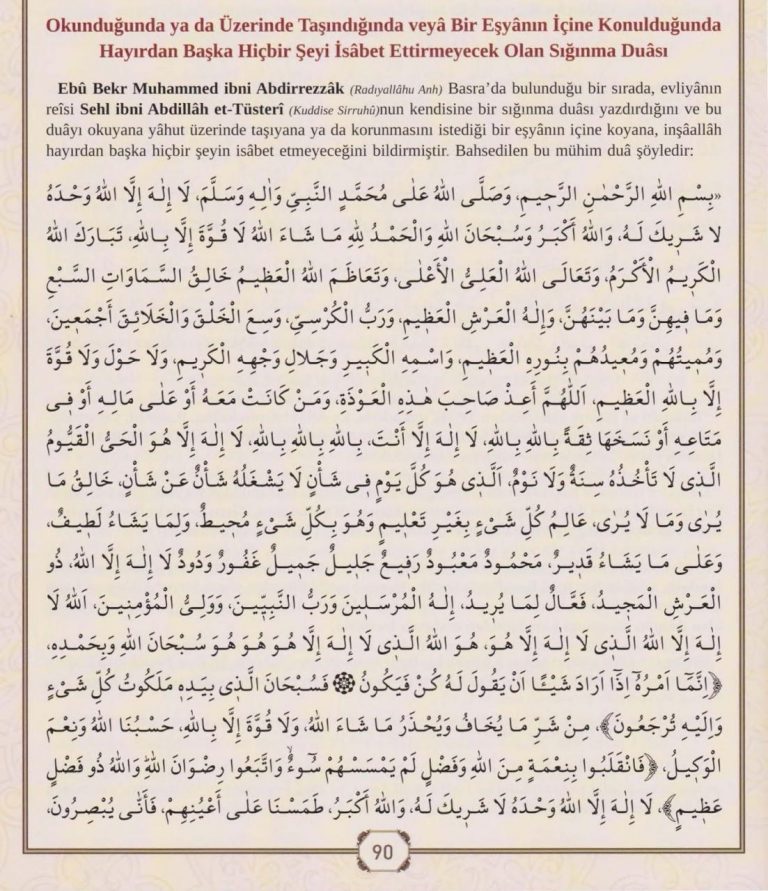 Okunduğunda ya da Üzerinde Taşındığında veyâ Bir Eşyânın İçine Konulduğunda
Hayırdan Başka Hiçbir Şeyi İsâbet Ettirmeyecek Olan Sığınma Duâsı
Ebû Bekr Muhammed ibni Abdirrezzâk (Radıyallâhu Anh) Basra'da bulunduğu bir sırada, evliyânın
reîsi Sehl ibni Abdillâh et-Tüsterî (Kuddise Sirruhû)nun kendisine bir sığınma duâsı yazdırdığını ve bu
duâyı okuyana yâhut üzerinde taşıyana ya da korunmasını istediği bir eşyânın içine koyana, inşâallâh
hayırdan başka hiçbir şeyin isâbet etmeyeceğini bildirmiştir. Bahsedilen bu mühim duâ şöyledir:
«بِسْمِ اللهِ الرَّحْمٰنِ الرَّحِيمِ، وَصَلَّى اللهُ عَلٰى مُحَمَّدٍ النَّبِيِّ وَاٰلِهِ وَسَلَّمَ، لَا إِلٰهَ إِلَّا اللهُ وَحْدَهُ
لَا شَرِيكَ لَهُ، وَاللهُ أَكْبَرُ وَسُبْحَانَ اللهِ وَالْحَمْدُ لِلهِ مَا شَاءَ اللهُ لَا قُوَّةَ إِلَّا بِاللهِ، تَبَارَكَ اللهُ
الْكَرِيمُ الْأَكْرَمُ، وَتَعَالَى اللهُ الْعَلِيُّ الْأَعْلٰى، وَتَعَاظَمَ اللهُ الْعَظِيمُ خَالِقُ السَّمَاوَاتِ السَّبْعِ
وَمَا فِيهِنَّ وَمَا بَيْنَهُنَّ، وَإِلٰهُ الْعَرْشِ الْعَظِيمِ، وَرَبُّ الْكُرْسِيِّ، وَسِعَ الْخَلْقَ وَالْخَلَائِقَ أَجْمَعِينَ،
وَمُمِيتُهُمْ وَمُعِيدُهُمْ بِنُورِهِ الْعَظِيمِ، وَاسْمِهِ الْكَبِيرِ وَجَلَالِ وَجْهِهِ الْكَرِيمِ، وَلَا حَوْلَ وَلَا قُوَّةَ
إِلَّا بِاللهِ الْعَظِيمِ، اَللّٰهُمَّ أَعِذْ صَاحِبَ هٰذِهِ الْعَوْذَةِ، وَمَنْ كَانَتْ مَعَهُ أَوْ عَلٰى مَالِهِ أَوْ فِى
مَتَاعِهِ أَوْ نَسَخَهَا ثِقَةً بِاللهِ بِاللهِ، لَا إِلٰهَ إِلَّا أَنْتَ، بِاللهِ بِاللهِ بِاللهِ، لَا إِلٰهَ إِلَّا هُوَ الْحَيُّ الْقَيُّومُ
الَّذِى لَا تَأْخُذُهُ سِنَةٌ وَلَا نَوْمٌ، اَلَّذِى هُوَ كُلَّ يَوْمٍ فِى شَأْنٍ لَا يَشْغَلُهُ شَأْنٌ عَنْ شَأْنٍ، خَالِقُ مَا
يُرٰى وَمَا لَا يُرٰى، عَالِمُ كُلِّ شَىْءٍ بِغَيْرِ تَعْلِيمٍ وَهُوَ بِكُلِّ شَىْءٍ مُحِيطٌ، وَلِمَا يَشَاءُ لَطِيفٌ،
وَعَلٰى مَا يَشَاءُ قَدِيرٌ، مَحْمُودٌ مَعْبُودٌ رَفِيعٌ جَلِيلٌ جَمِيلٌ غَفُورٌ وَدُودٌ لَا إِلٰهَ إِلَّا اللهُ، ذُو
الْعَرْشِ الْمَجِيدُ، فَعَّالٌ لِمَا يُرِيدُ، إِلٰهُ الْمُرْسَلِينَ وَرَبُّ النَّبِيِّينَ، وَوَلِىُّ الْمُؤْمِنِينَ، اَللهُ لَا
إِلٰهَ إِلَّا اللهُ الَّذِى لَا إِلٰهَ إِلَّا هُوَ، هُوَ اللهُ الَّذِى لَا إِلٰهَ إِلَّا هُوَ هُوَ هُوَ سُبْحَانَ اللهِ وَبِحَمْدِهِ،
﴿اِنَّمَٓا اَمْرُهُٓ اِذَٓا اَرَادَ شَيْـًٔا اَنْ يَقُولَ لَهُ كُنْ فَيَكُونُ ۞ فَسُبْحَانَ الَّذِى بِيَدِهِ مَلَكُوتُ كُلِّ شَىْءٍ
وَاِلَيْهِ تُرْجَعُونَ﴾، مِنْ شَرِّ مَا يُخَافُ وَيُحْذَرُ مَا شَاءَ اللهُ، وَلَا قُوَّةَ إِلَّا بِاللهِ، حَسْبُنَا اللهُ وَنِعْمَ
الْوَكِيلُ، ﴿فَانْقَلَبُوا بِنِعْمَةٍ مِنَ اللهِ وَفَضْلٍ لَمْ يَمْسَسْهُمْ سُٓوءٌۙ وَاتَّبَعُوا رِضْوَانَ اللهِؕ وَاللهُ ذُو فَضْلٍ
عَظِيمٍ﴾، لَا إِلٰهَ إِلَّا اللهُ وَحْدَهُ لَا شَرِيكَ لَهُ، وَاللهُ أَكْبَرُ، طَمَسْنَا عَلٰى أَعْيُنِهِمْ، فَأَنّٰى يُبْصِرُونَ،
90